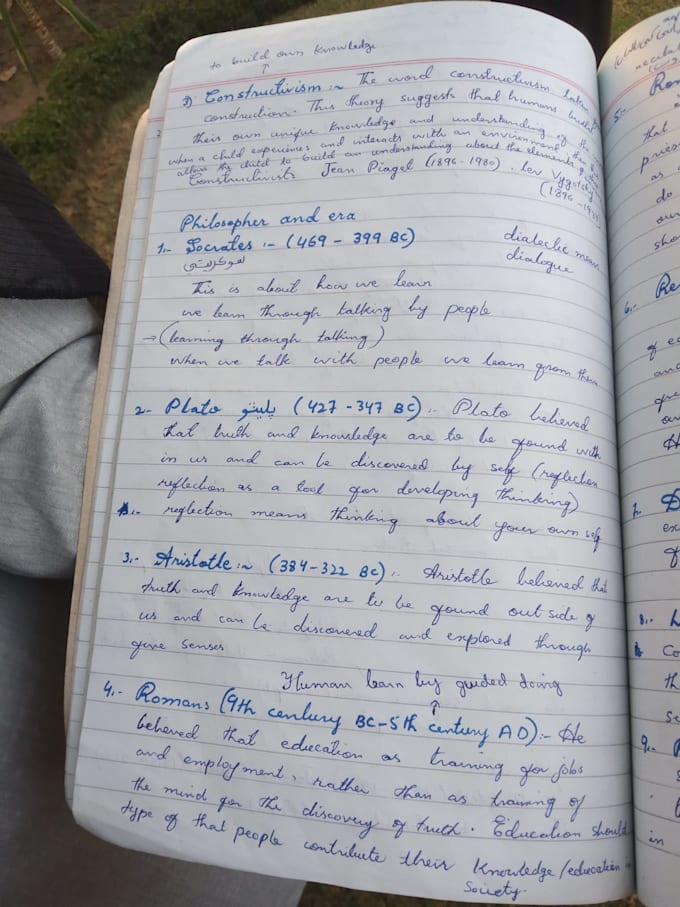 to build own knowledge
↑
3) Constructivism :~ The word constructivism
construction. This theory suggests that humans build
their own unique knowledge and understanding of the
when a child experiences and interacts with an environment
allow the child to build an understanding about the elements
Constructivists Jean Piaget (1896-1980). Lev Vygotsky
(1896-19
Philosopher and era
1.- Socrates :- (469 – 399 BC)
dialectic mean
dialogue
This is about how we learn
we learn through talking by people
→ (learning through talking)
when we talk with people we learn from them
2.- Plato پلیٹو (427 -347 BC):- Plato believed
that truth and knowledge are to be found with
in us and can be discovered by self (reflection
reflection as a tool for developing thinking)
reflection means thinking about your own self
3.- Aristotle :~ (384-322 BC):. Aristotle believed that
truth and knowledge are to be found out side of
us and can be discovered and explored through
give senses
Human learn by guided doing
↑
4.- Romans (9th century BC-5th century AD):- He
believed that education as training for jobs
and employment, rather than as training of
the mind for the discovery of truth. Education should
type of that people contribute their knowledge/education in
Society.
5.-
Ro
that
pries
as
do
our
sho
6.- Re
of e
and
7. D
ex
8.-
Co
th
se
9.-
in